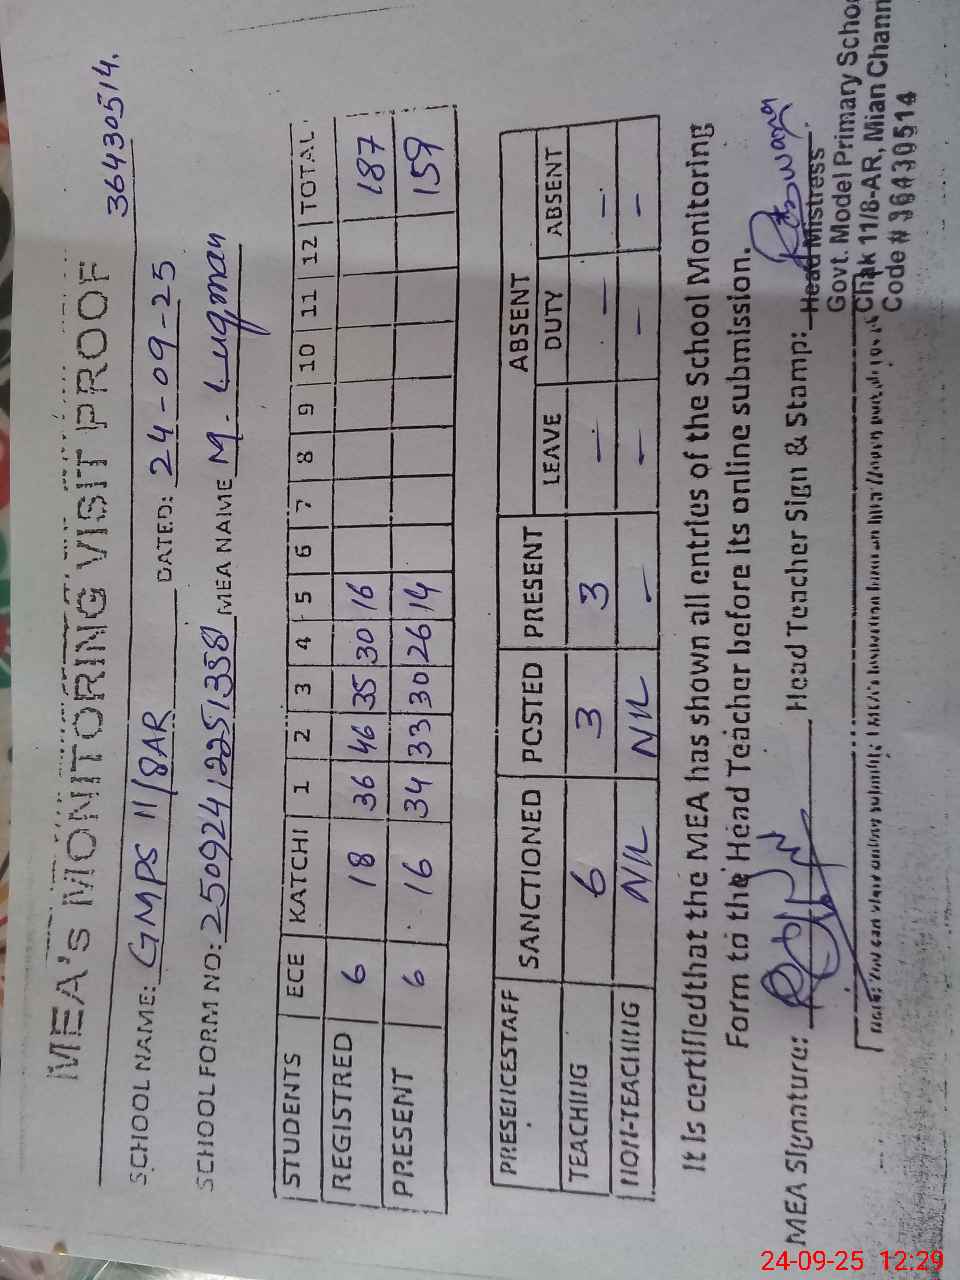 36430514.
MEA's MONITORING VISIT PROOF
SCHOOL NAME: GMPS 11/8AR DATED: 24-09-25
SCHOOL FORM NO: 2509241225135581 MEA NAME M. Luqman
STUDENTS ECE KATCHI 1 2 3 4 5 6 7 8 9 10 11 12 TOTAL
REGISTRED 6 18 36 46 35 30 16 187
PRESENT 6 16 34 33 30 26 14 159
PRESENCESTAFF SANCTIONED POSTED PRESENT ABSENT
LEAVE DUTY ABSENT
TEACHING 6 3 3 - - -
NON-TEACHING NIL NIL - - - -
It is certifiedthat the MEA has shown all entries of the School Monitoring
Form to the Head Teacher before its online submission.
MEA Signature: Head Teacher Sign & Stamp: Rizwana
Head Mistress
Govt. Model Primary
Chak 11/8-AR, Mian
Code # 36430514
Note: You can view online submitted MEA's
24-09-25 12:29